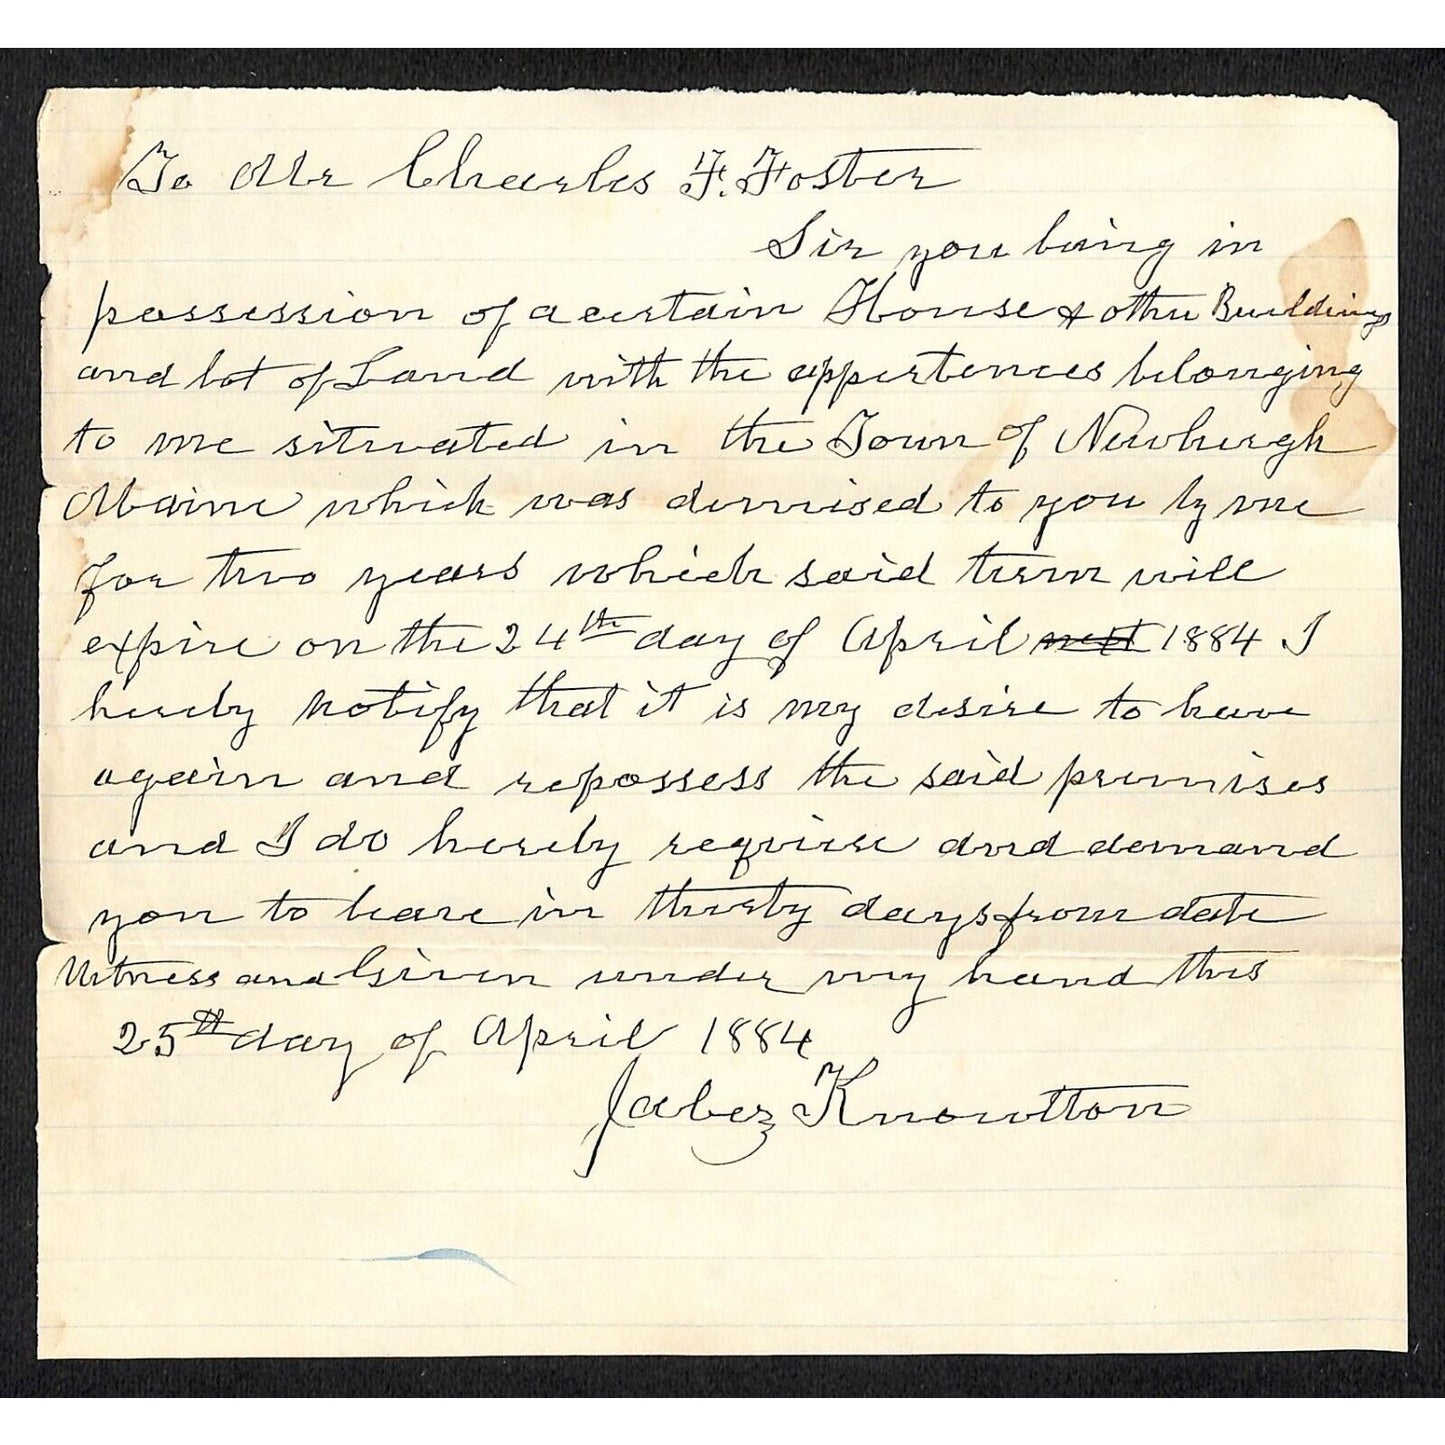 To Mr Charles F. Foster
Sir you being in
possession of a certain House & other Buildings
and lot of Land with the appertences belonging
to me situated in the Town of Newburgh
Maine which was demised to you by me
for two years which said term will
expire on the 24th day of April next 1884 I
hereby notify that it is my desire to have
again and repossess the said premises
and I do hereby require and demand
you to leave in thirty days from date
Witness and Given under my hand this
25th day of April 1884
Jabez Knowlton